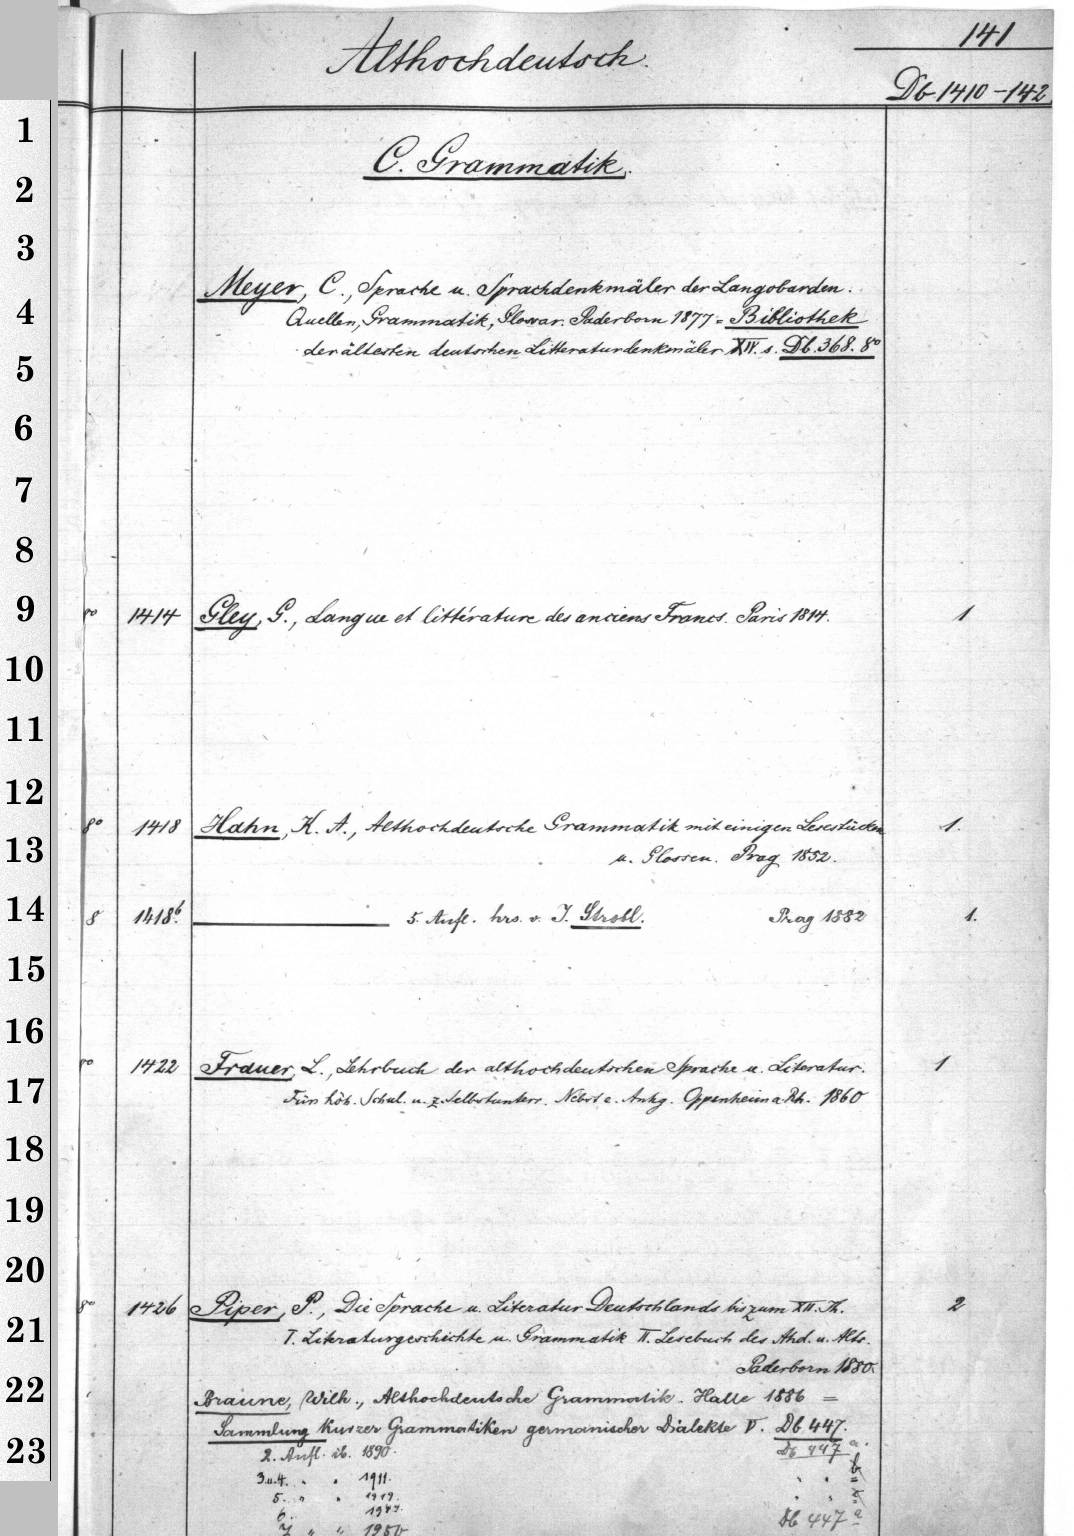 141
Althochdeutsch.
Db 1410–142
1
C. Grammatik.
2
3
Meyer, C., Sprache u. Sprachdenkmäler der Langobarden.
4
Quellen, Grammatik, Glossar. Paderborn 1877 = Bibliothek
der ältesten deutschen Litteraturdenkmäler XIV. s. Db. 368. 8º
5
6
7
8
9
8º 1414 Gley, G., Langue et littérature des anciens Francs. Paris 1814. 1
10
11
12
8º 1418 Hahn, K. A., Althochdeutsche Grammatik mit einigen Lesestücken 1.
13
u. Glossen. Prag 1852.
14
8 1418b. 5. Aufl. hrs. v. J. Strobl. Prag 1882 1.
15
16
8º 1422 Frauer, L., Lehrbuch der althochdeutschen Sprache u. Literatur. 1
17
Fürs höh. Schul. u. z. Selbstunterr. Nebst e. Anhg. Oppenheim a. Rh. 1860
18
19
20
8º 1426 Piper, P., Die Sprache u. Literatur Deutschlands bis zum XII. Jh. 2
21
I. Literaturgeschichte u. Grammatik II. Lesebuch des Ahd. u. Alts.
Paderborn 1880.
22
Braune, Wilh., Althochdeutsche Grammatik. Halle 1886 =
Sammlung kurzer Grammatiken germanischer Dialekte V. Db 447.
23
2. Aufl. ib. 1890. Db 447 a.
3.u.4. " " 1911. " " b
5. " " 1919. " "
6.
7 " " 1950 Db 447 a